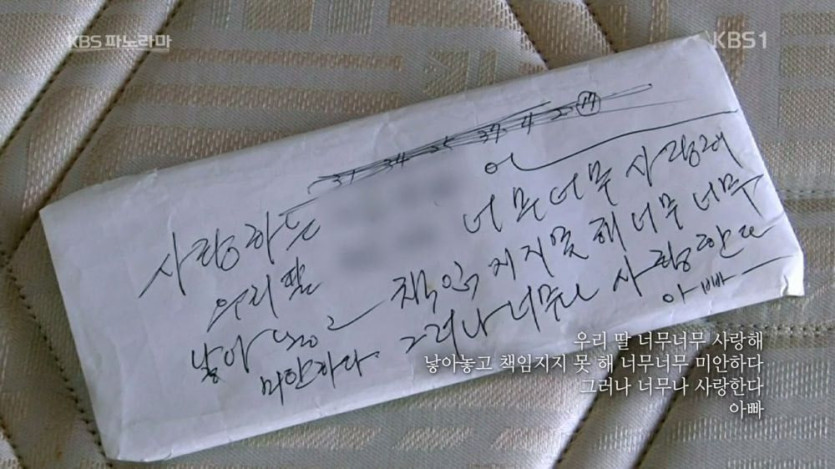 KBS 파노라마
KBS1
31 34 35 37 4 2 17
사랑하는 너무너무 사랑해
우리 딸 책임지지 못 해 너무 너무
낳아 놓고 그러나 너무나 사랑한다
미안하다. 아빠
우리 딸 너무너무 사랑해
낳아놓고 책임지지 못 해 너무너무 미안하다
그러나 너무나 사랑한다
아빠